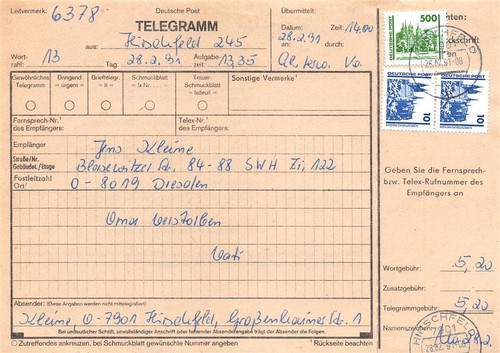 Leitvermerk: 6378
Deutsche Post
TELEGRAMM
Übermittelt:
Datum: 28.2.91 Zeit: 14.00
an: durch:
aus: Hirschfeld 245
Wort-zahl: 13 Tag: 28.2.91 Aufgabe-zeit: 13,35
Gewöhnliches Telegramm
Dringend = urgent =
Brieftelegr. = lt =
Schmuckblatt = lx Nr. ... =
Trauer-Schmuckblatt = lxdeuil =
Sonstige Vermerke¹
Fernsprech-Nr.¹ des Empfängers:
Telex-Nr.¹ des Empfängers:
Empfänger
Jens Kleine
Straße/Nr. Gebäudet./Etage
Blasewitzer Str. 84-88 SWH Zi, 122
Postleitzahl Ort¹
O-8019 Dresden
Oma verstorben
Vati
Absender: (Diese Angaben werden nicht mittelegrafiert)
Kleine O-7901 Hirschfeld, Großenhainer Str. 1
Bei undeutlicher Schrift, unvollständiger Anschrift oder fehlender Absenderangabe trägt der Absender die Folgen.
Zutreffendes ankreuzen, bei Schmuckblatt gewünschte Nummer angeben
¹ Rückseite beachten
500
DEUTSCHE POST
DEUTSCHE POST
DEUTSCHE POST
10
10
Geben Sie die Fernsprech-
bzw. Telex-Rufnummer des
Empfängers an
Wortgebühr: 5,20
Zusatzgebühr:
Telegrammgebühr: 5,20
Namenszeichen
HIRSCHFELD
7901